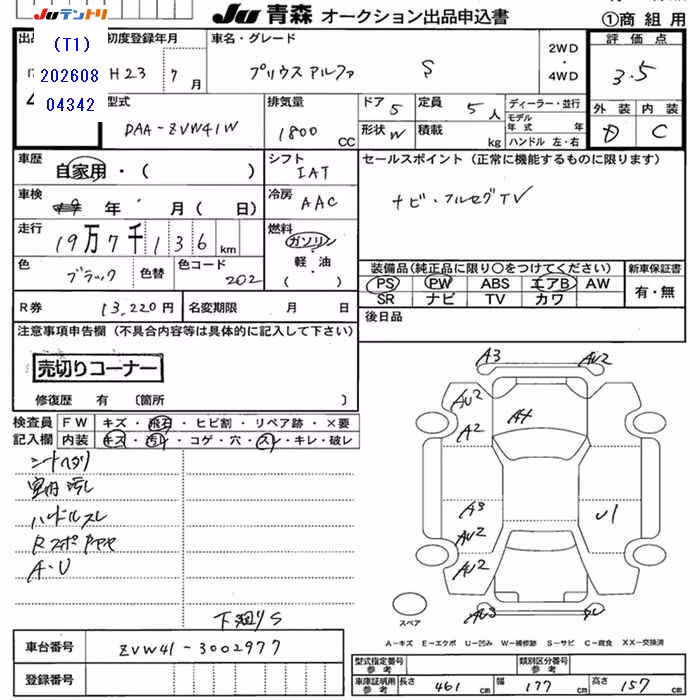 Juテントリ
Ju 青森 オークション出品申込書
①商組用
出品
(T1)
202608
04342
初度登録年月
H23 7月
車名・グレード
プリウスアルファ S
2WD
・
4WD
評価点
3.5
外装 内装
D C
型式
DAA-ZVW41W
排気量
1800 CC
ドア 5
定員 5人
形状 W
積載 kg
ディーラー・並行
モデル年式 年
ハンドル 左・右
車歴
自家用・( )
シフト
IAT
セールスポイント(正常に機能するものに限ります)
ナビ・フルセグTV
車検
年 月( 日)
冷房
AAC
走行
19万7千136km
燃料
ガソリン
軽・油
( )
色
ブラック
色替
色コード
202
装備品(純正品に限り〇をつけてください)
PS PW ABS エアB AW
SR ナビ TV カワ
新車保証書
有・無
R券
13,220円
名変期限 月 日
後日品
注意事項申告欄(不具合内容等は具体的に記入して下さい)
売切りコーナー
修復歴 有 〔箇所 〕
検査員記入欄
FW キズ・飛石・ヒビ割・リペア跡・×要
内装 キズ・汚れ・コゲ・穴・スレ・キレ・破レ
シートヘタリ
室内汚レ
ハンドルスレ
A・U
下廻りS
A3
AU2
AU2
A4
A2
A3
U1
AU2
AU2
AU3
スペア
A－キズ E－エクボ U－凹み W－補修跡 S－サビ C－腐食 XX－交換済
車台番号
ZVW41-3002977
登録番号
型式指定番号
参考
類別区分番号
参考
車庫証明用
参考
長さ 461cm
幅 177cm
高さ 157cm